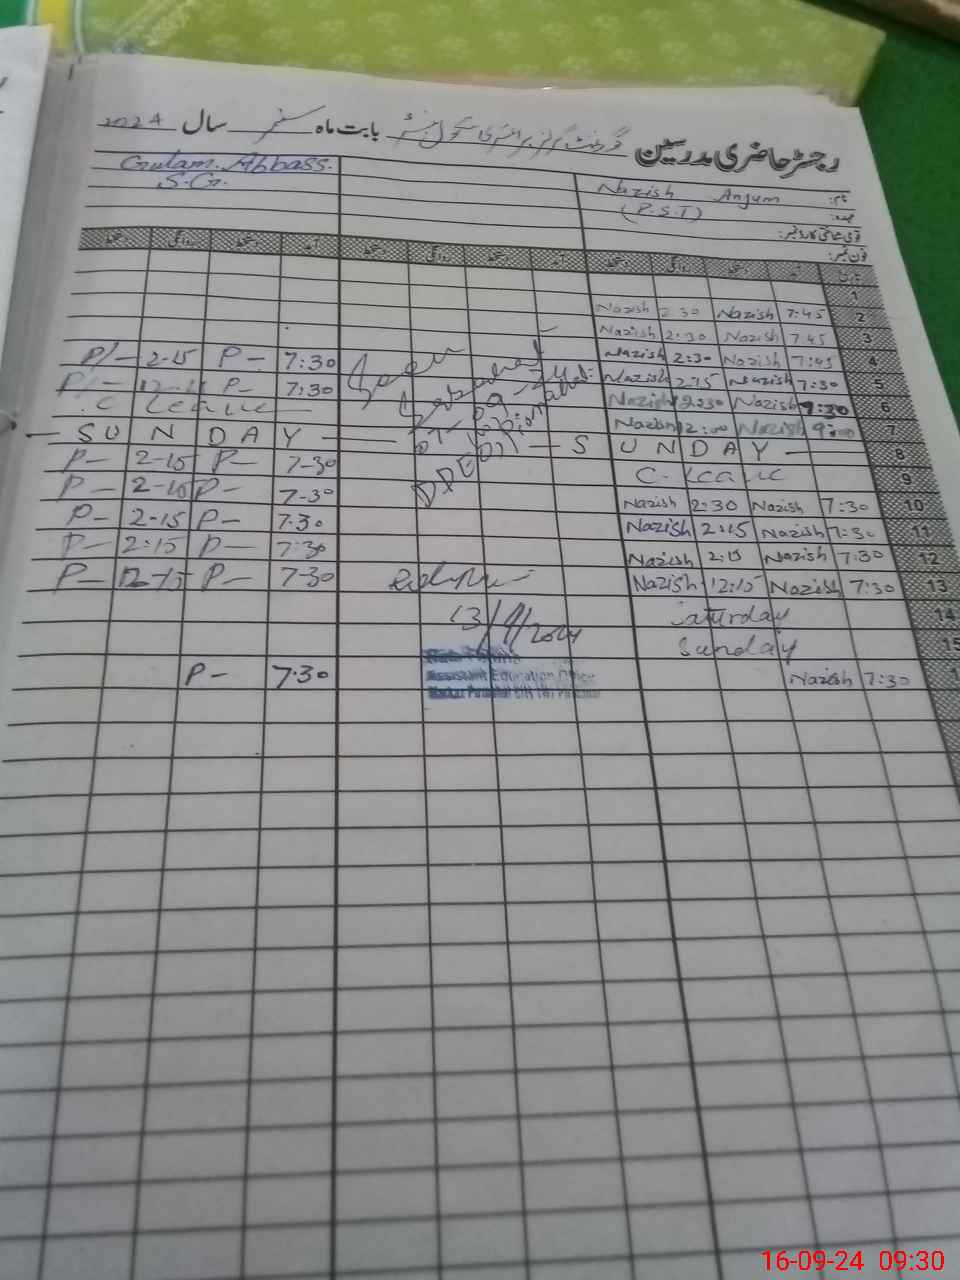 رجسٹر حاضری مدرسین گورنمنٹ گرلز پرائمری سکول بابت ماہ ستمبر سال 2024
نام: Nazish Anjum Gulam Abbass.
عہدہ: (P.S.T) S.G.
قومی شناختی کارڈ نمبر:
فون نمبر:
تاریخ آمد دستخط روانگی دستخط آمد دستخط روانگی دستخط آمد دستخط روانگی دستخط
1
2 7:45 Nazish 2:30 Nazish
3 7:45 Nazish 2:30 Nazish
4 7:45 Nazish 2:30 Nazish 7:30 P- 2-15 P/-
5 7:30 Nazish 2:15 Nazish 7:30 P- P/-
6 7:30 Nazish 12:30 Nazish C leave
7 9:00 Nazish 12:00 Nazish
8 SUNDAY SUNDAY
9 C. leave 7-30 P- 2-15 P-
10 7:30 Nazish 2:30 Nazish 7-30 P- 2-15 P-
11 7:30 Nazish 2:15 Nazish 7.30 P- 2-15 P-
12 7:30 Nazish 2:15 Nazish 7:30 P- 2:15 P-
13 7:30 Nazish 12:15 Nazish 7-30 P- 12-15 P-
14 Saturday
15 Sunday
7:30 Nazish 7.30 P-
13/9/2024
Assistant Education Officer
16-09-24 09:30